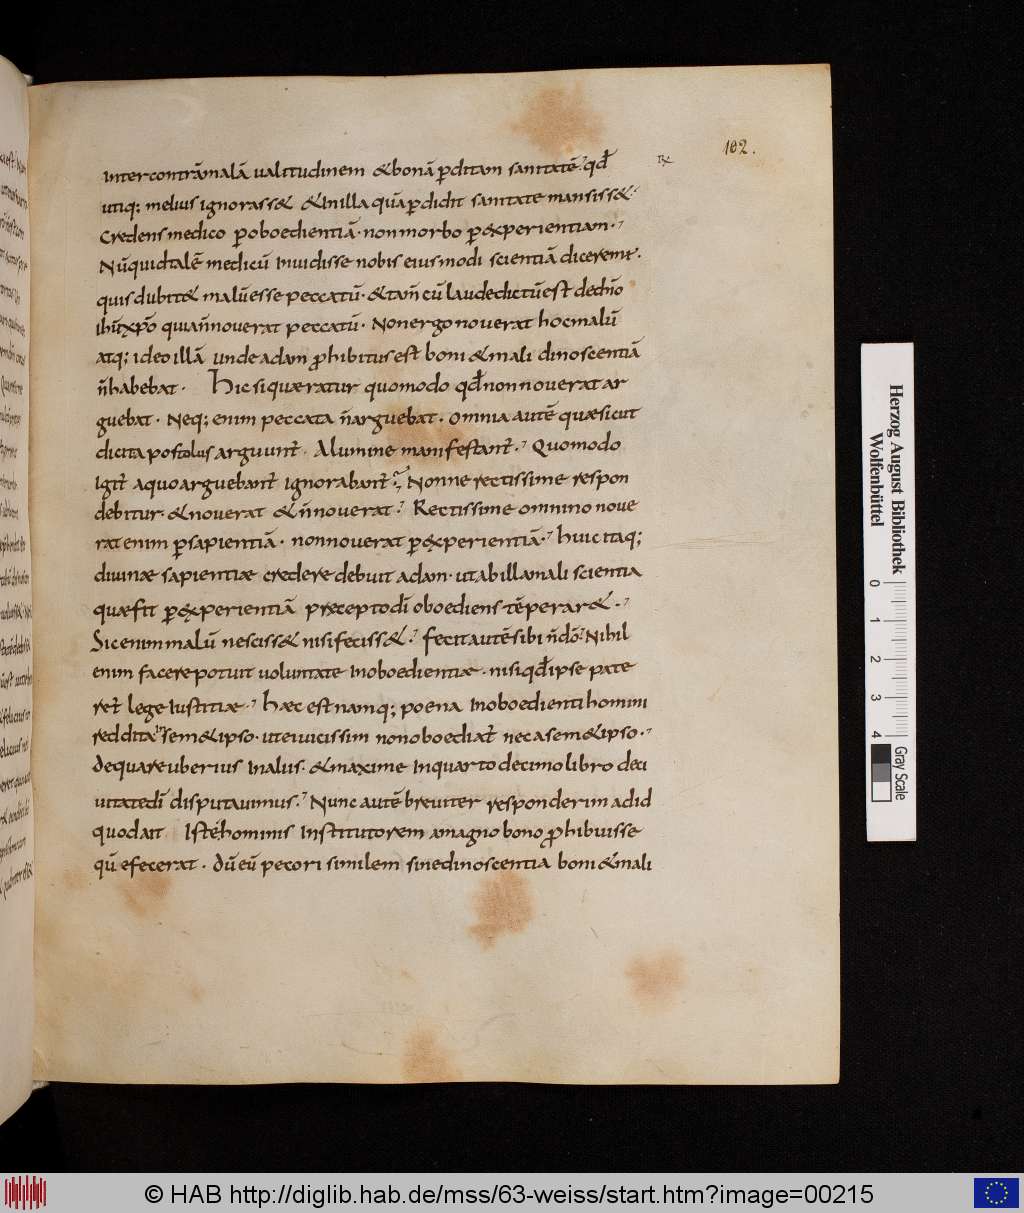 102.
intercontrāmalā ualitudinem &bonā pditam sanitatē. qđ
utiq; melius ignorass& &inilla quā pdidit sanitate mansiss&
Credens medico poboedientiā · non morbo p&xperientiam ·
Nūquidtalē medicū inuidisse nobis eiusmodi scientiā dicerem ·
quis dubit& malū esse peccatū · &tam̄ cū laudedictū est dedn̄o
ihūxp̄o quian̄nouerat peccatū · Nonergo nouerat hocmalū
atq; ideo illā unde adam prohibitus est boni &mali dinoscentiā
n̄habebat · Hic si quæratur quomodo qđ non nouerat ar
guebat · Neq; enim peccata n̄arguebat · omnia autē quæsicut
dicit apostolus arguunt̄ · Alumine manifestant̄ · Quomodo
igit̄ aquo arguebant̄ ignorabant̄ Nonne rectissime respon
debitur · &nouerat &n̄nouerat Rectissime omnino noue
rat enim psapientiā · nonnouerat p&xperientiā · huic itaq;
diuinæ sapientiæ credere debuit adam · ut abilla mali scientia
quæfit p&xperientiā precepto dī oboediens tēperar& ·
Sic enim malū nesciss& nisi feciss& fecit autē sibi n̄dō Nihil
enim facere potuit uoluntate inoboedientiæ · nisi qđ ipse pate
ret̄ lege iustitiæ · hæc est namq; poena inoboedienti homini
reddita in sem&ipso · utei uicissim non oboediat̄ nec asem&ipso ·
dequare uberius inalus · &maxime inquarto decimo libro deci
uitatedī disputauimus · Nunc autē breuiter responderim adid
quodait istehominis institutorem amagno bono prohibuisse
quē efecerat · dū eū pecori similem sinedinoscentia boni &mali
Herzog August Bibliothek
Wolfenbüttel
0 1 2 3 4
Gray Scale
© HAB http://diglib.hab.de/mss/63-weiss/start.htm?image=00215